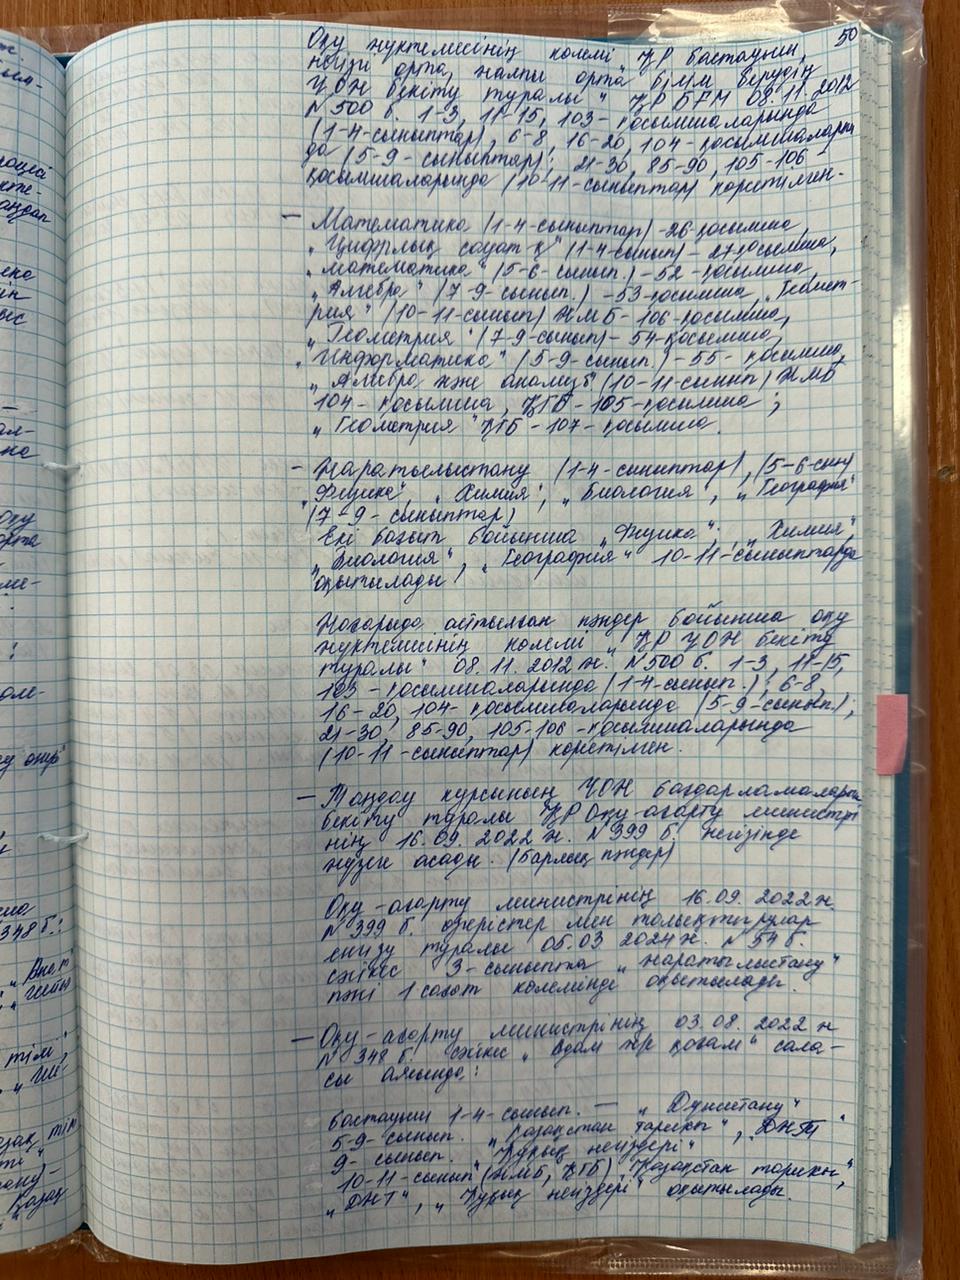 50
Оқу жүктемесінің көлемі „ҚР бастауыш,
негізгі орта, жалпы орта білім берудің
ҮОЖ бекіту туралы" ҚР БҒМ 08.11.2012
N 500 б. 1-3, 11-15, 103-қосымшаларында
(1-4-сыныптар), 6-8, 16-20, 104-қосымшаларын
да (5-9-сыныптар); 21-30, 85-90, 105-106-
қосымшаларында (10-11-сыныптар) көрсетілген.
— Математика (1-4-сыныптар)-26-қосымша,
„Цифрлық сауат-қ" (1-4-сынып)-27-қосымша,
„Математика" (5-6-сынып.)-52-қосымша,
„Алгебра" (7-9-сынып.)-53-қосымша, „Геомет-
рия" (10-11-сынып) ЖМБ-106-қосымша,
„Геометрия" (7-9-сынып)-54-қосымша,
„Информатика" (5-9-сынып.)-55-қосымша,
„Алгебра және анализ б" (10-11-сынып) ЖМБ
104-қосымша, ҚГБ-105-қосымша;
„Геометрия" ҚГБ-107-қосымша.
— Жаратылыстану (1-4-сыныптар), (5-6-сын)
„Физика", „Химия", „Биология", „География"
(7-9-сыныптар)
Екі бағыт бойынша „Физика", „Химия",
„Биология", „География" 10-11-сыныптарда
оқытылады
Жоғарыда айтылған пәндер бойынша оқу
жүктемесінің көлемі „ҚР ҮОЖ бекіту
туралы" 08.11.2012 ж. N 500 б. 1-3, 11-15,
103-қосымшаларында (1-4-сынып.); 6-8,
16-20, 104-қосымшаларында (5-9-сынып.);
21-30, 85-90, 105-106-қосымшаларында
(10-11-сыныптар) көрсетілген.
— Таңдау курсының ҮОЖ бағдарламаларын
бекіту туралы ҚР Оқу-ағарту министрі
нің 16.09.2022 ж. N 399 б. негізінде
жүзеге асады. (барлық пәндер)
Оқу-ағарту министрінің 16.09.2022 ж.
N 399 б. өзгерістер мен толықтырулар
енгізу туралы 05.03 2024 ж. N 54 б.
сәйкес 3-сыныпта „Жаратылыстану"
пәні 1 сағат көлемінде оқытылады.
— Оқу-ағарту министрінің 03.08.2022 ж
N 348 б. сәйкес „Адам және қоғам" сала-
сы аясында:
Бастауыш 1-4-сынып. — „Дүниетану"
5-9-сынып. „Қазақстан тарихы", „ДЖТ"
9-сынып. „Құқық негіздері"
10-11-сынып (ЖМБ, ҚГБ) „Қазақстан тарихы",
„ДЖТ", „Құқық негіздері" оқытылады.